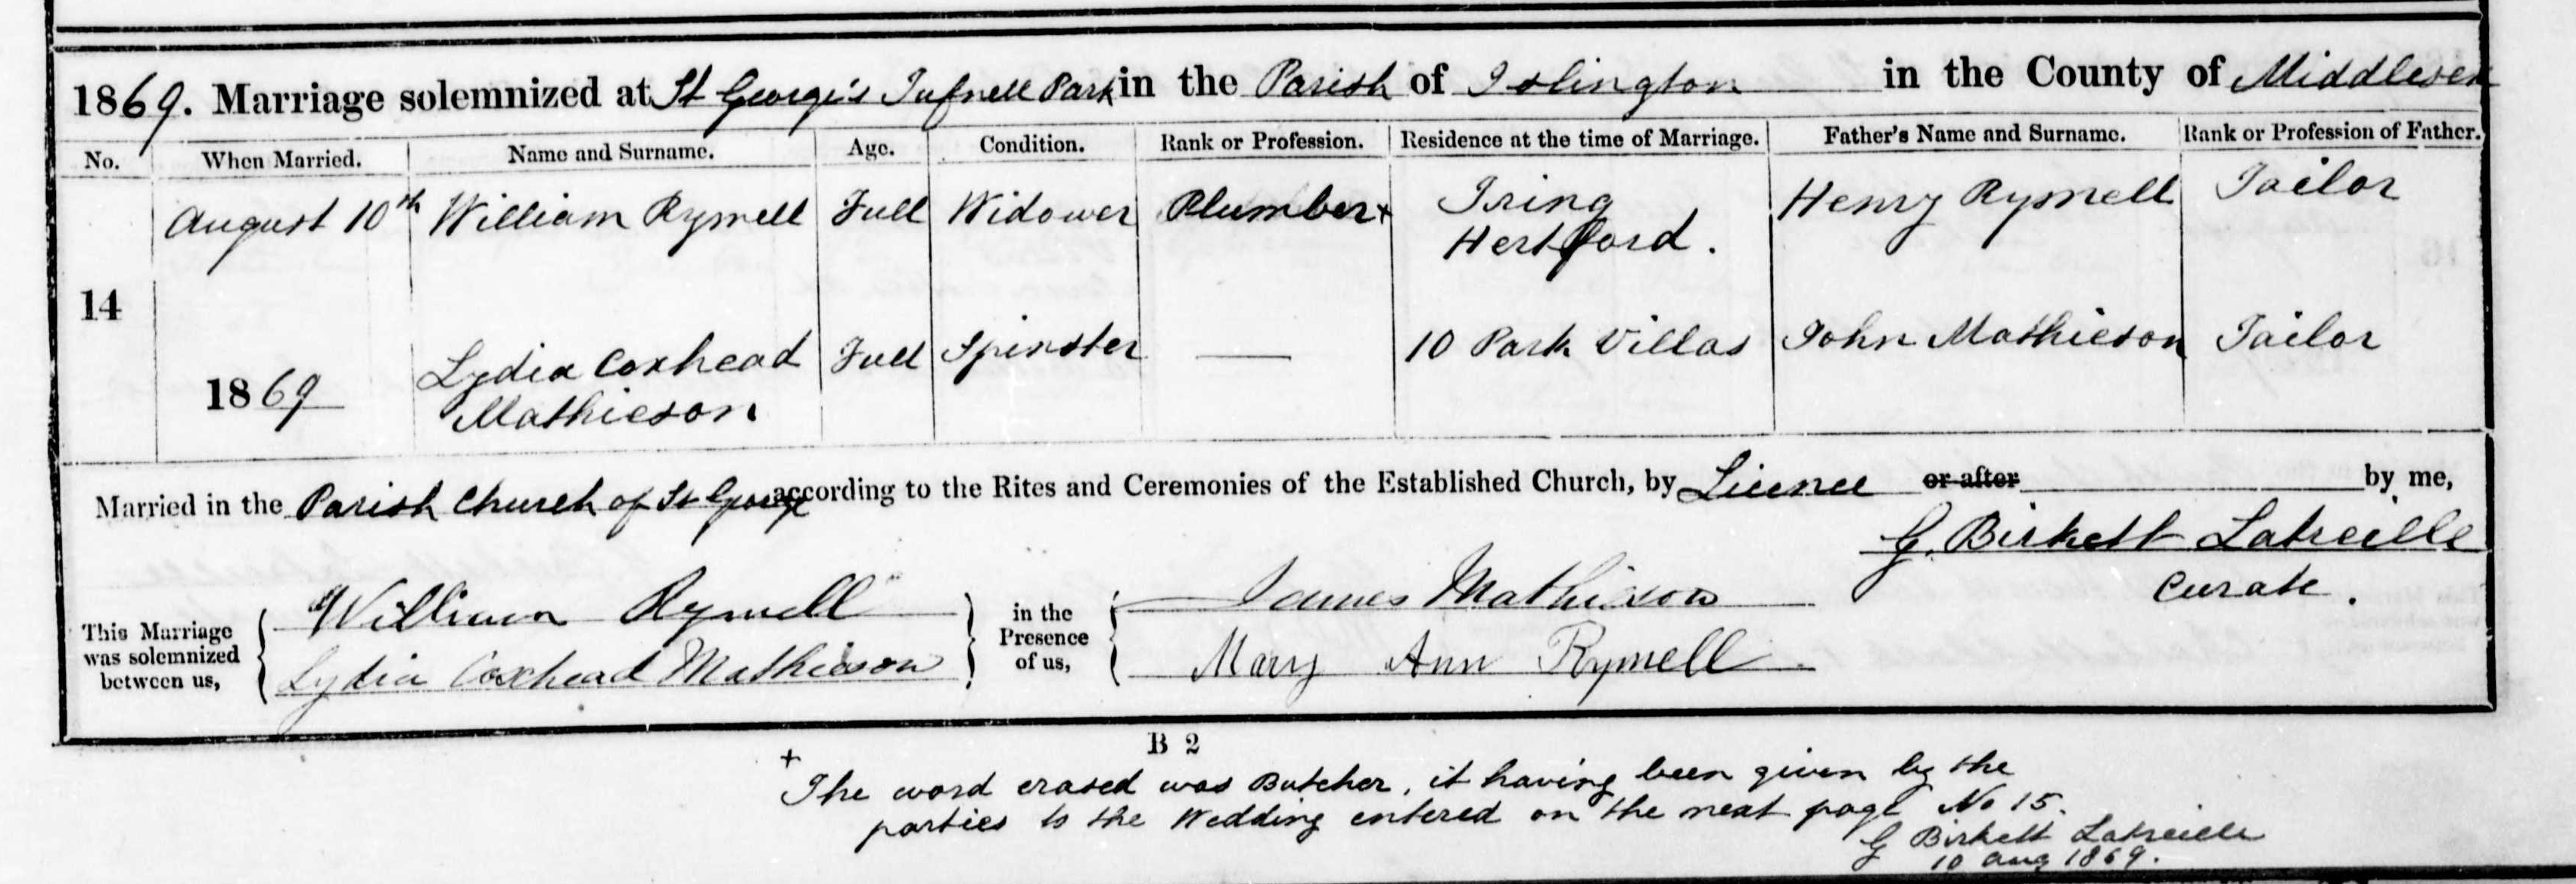 1869. Marriage solemnized at St George's Tufnell Park in the Parish of Islington in the County of Middlesex
No. When Married. Name and Surname. Age. Condition. Rank or Profession. Residence at the time of Marriage. Father's Name and Surname. Rank or Profession of Father.
August 10th William Rymell Full Widower Plumber+ Tring Henry Rymell Tailor
Hertford.
14
Lydia Coxhead Full Spinster — 10 Park Villas John Mathieson Tailor
1869 Mathieson
Married in the Parish Church of St George according to the Rites and Ceremonies of the Established Church, by Licence or after by me,
G. Birkett Latreille
Curate.
This Marriage was solemnized between us, William Rymell in the Presence of us, James Mathieson
Lydia Coxhead Mathieson Mary Ann Rymell
B 2
+ The word erased was Butcher, it having been given by the
parties to the Wedding entered on the next page No 15.
G Birkett Latreille
10 Aug 1869.